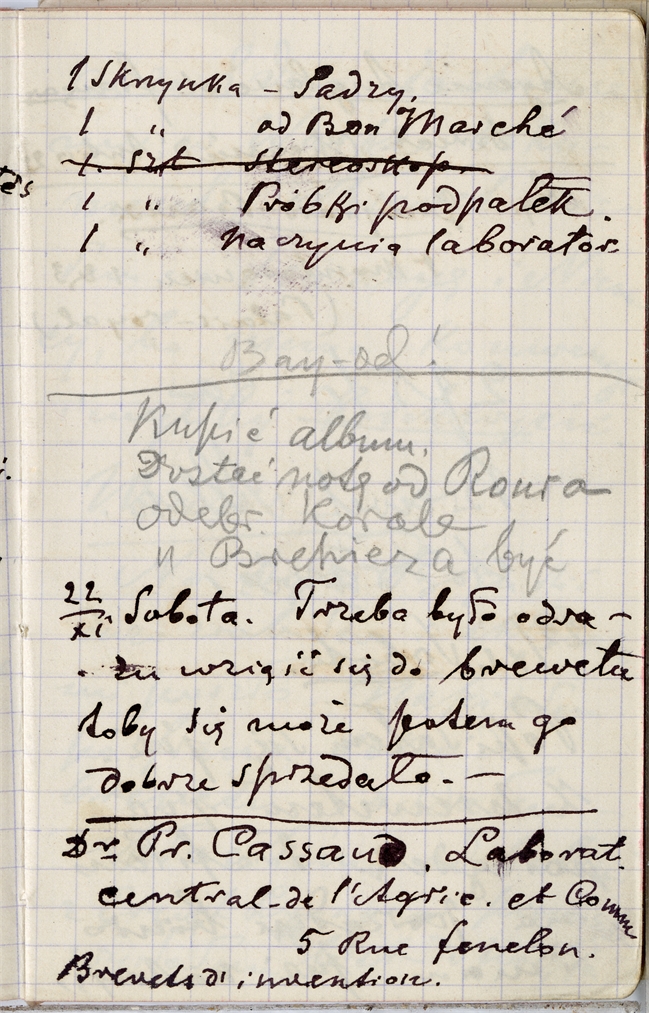 1 Skrzynka – Sadzy.
1 „ od Bon Marché
1. szt stereoskop.
1 „ Próbki podpałek.
1 „ naczynia laborator.
Bay-od!
Kupić album.
Dostać notę od Roura
odebr. Korale
u Brehiera być
22/XI Sobota. Trzeba było odra–
zu wziąść się do brewetu
toby się może potem go
dobrze sprzedało. —
Dr. Pr. Cassaud. Laborat.
central de l'Agric. et Comm
5 Rue fenelon.
Brevets d'invention.